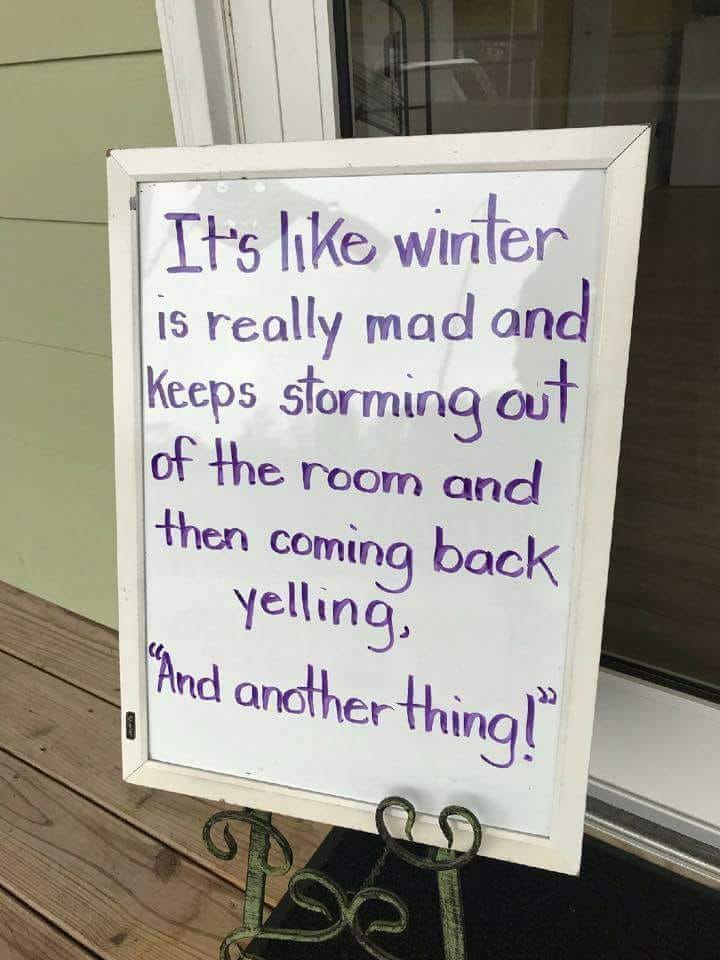 It's like winter
is really mad and
keeps storming out
of the room and
then coming back
yelling,
"And another thing!"